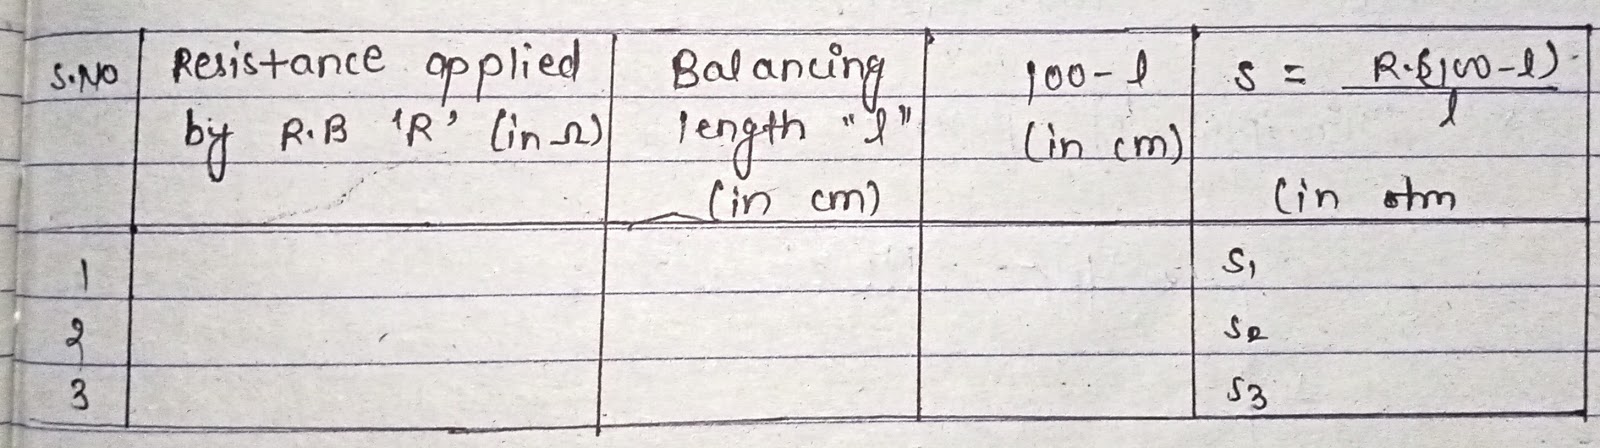 S.NO Resistance applied by R.B 'R' (in Ω) Balancing length "l" (in cm) 100-l (in cm) S = R.(100-l) / l (in ohm
1 S₁
2 S₂
3 S₃